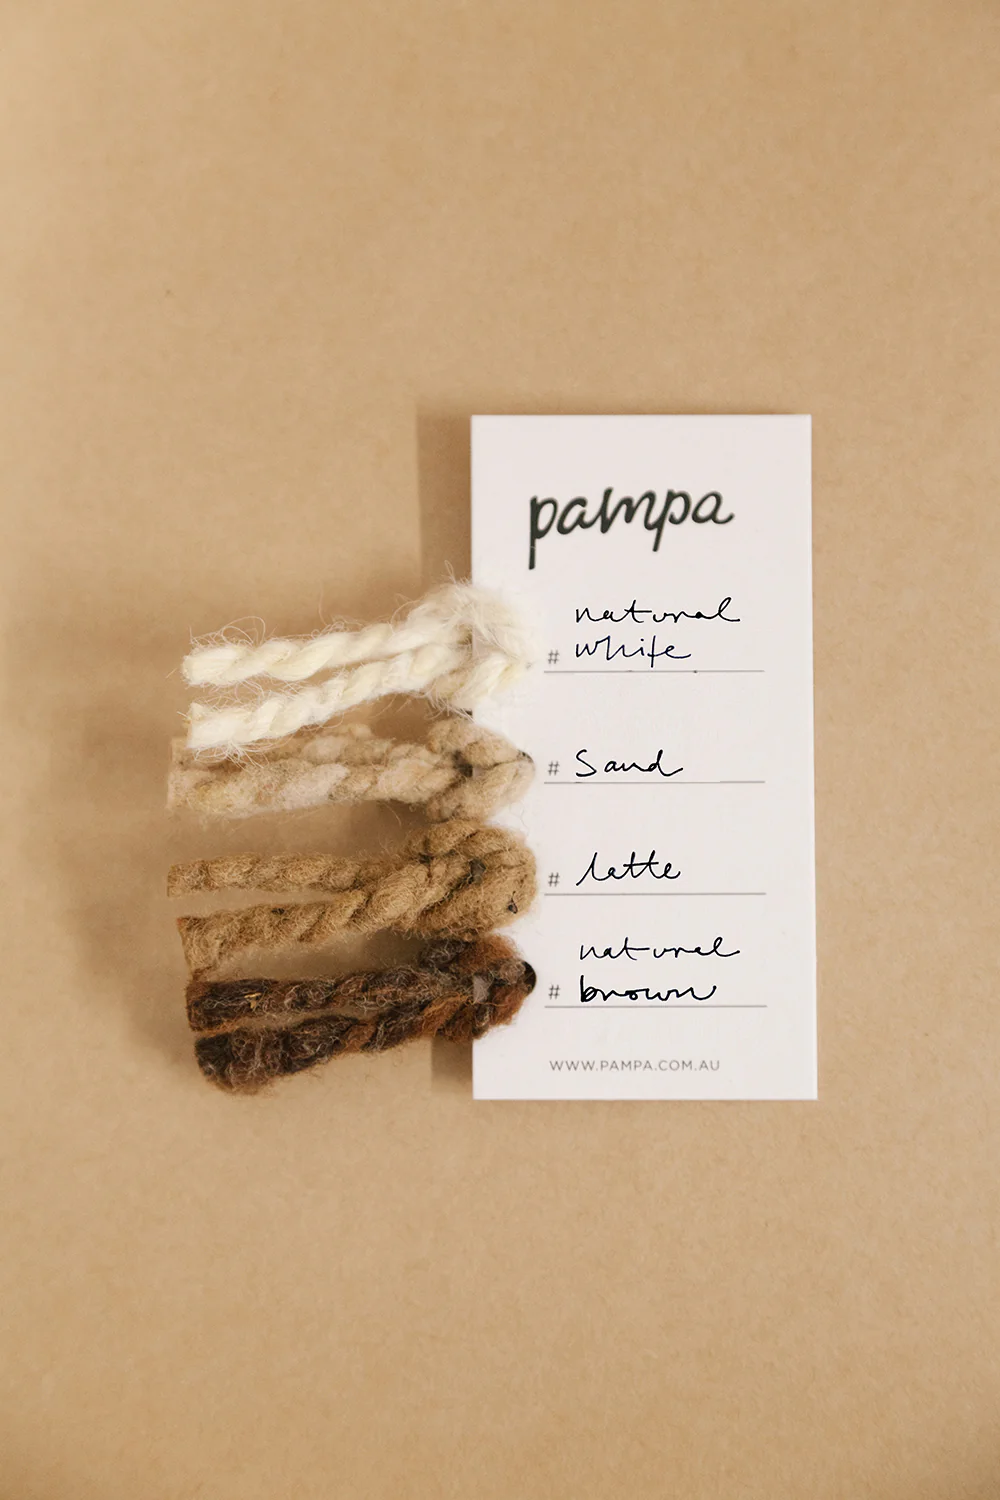 pampa
natural
# white
# Sand
# latte
natural
# brown
WWW.PAMPA.COM.AU